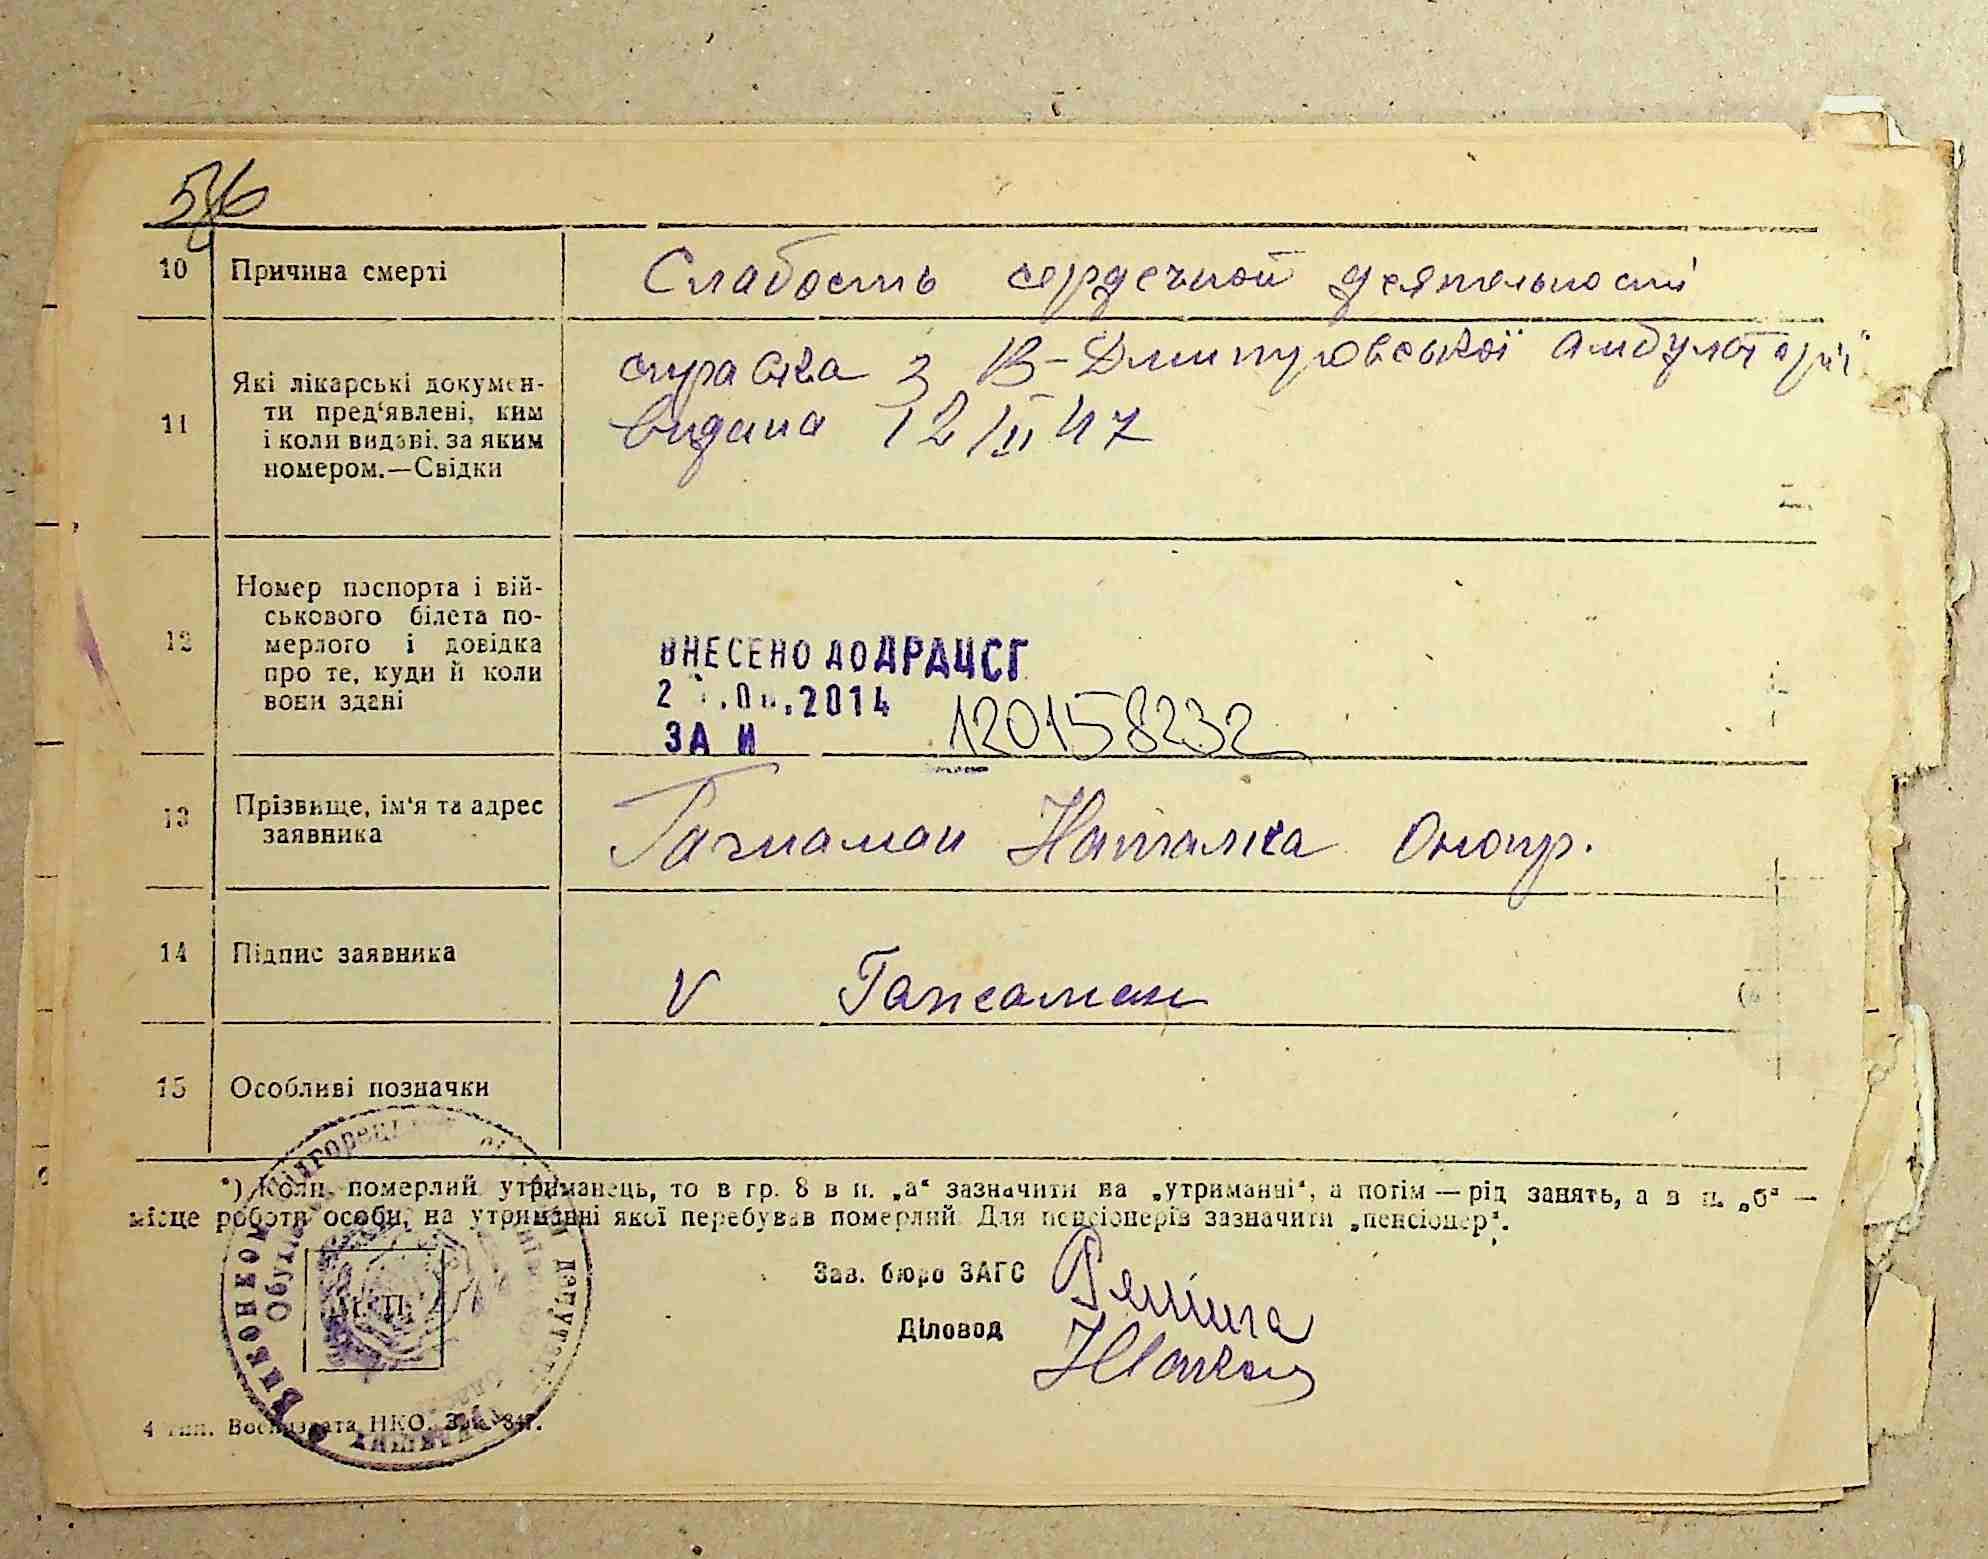 10 Причина смерті Слабость сердечной деятельності
справка з В-Дмитровської амбулаторії
Які лікарські докумен-
ти пред'явлені, ким
11 і коли видані, за яким видана 12/II 47
номером.—Свідки
Номер паспорта і вій-
ськового білета по-
12 мерлого і довідка ВНЕСЕНО ДО ДРАЦСГ
про те, куди й коли
вони здані 2014
ЗА № 120158232
13 Прізвище, ім'я та адрес
заявника Наталка Онопр.
14 Підпис заявника V
15 Особливі позначки
*) Коли померлий утриманець, то в гр. 8 в п. „а“ зазначити на „утриманні“, а потім — рід занять, а в п. „б“ —
місце роботи особи, на утриманні якої перебував померлий. Для пенсіонерів зазначити „пенсіонер“.
Зав. бюро ЗАГС
Діловод
М. П.
Виконком
4 тип. Воениздата НКО. Зак.